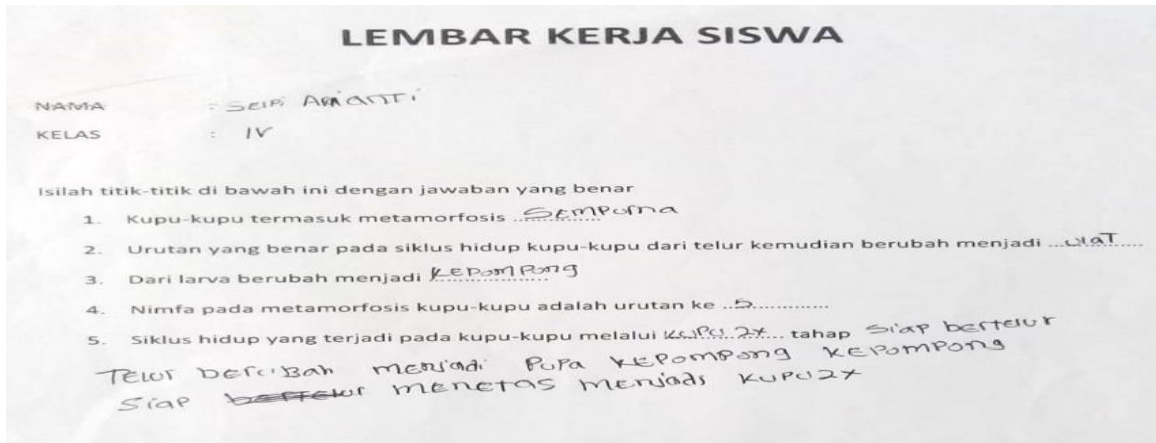 LEMBAR KERJA SISWA
NAMA : Selpi Arianti
KELAS : IV
Isilah titik-titik di bawah ini dengan jawaban yang benar
1. Kupu-kupu termasuk metamorfosis ..Sempurna
2. Urutan yang benar pada siklus hidup kupu-kupu dari telur kemudian berubah menjadi ...ulat....
3. Dari larva berubah menjadi kepompong
4. Nimfa pada metamorfosis kupu-kupu adalah urutan ke ..5.............
5. Siklus hidup yang terjadi pada kupu-kupu melalui kupu 2x... tahap siap bertelur
Telur berubah menjadi pupa kepompong kepompong
siap bertelur menetas menjadi kupu2x